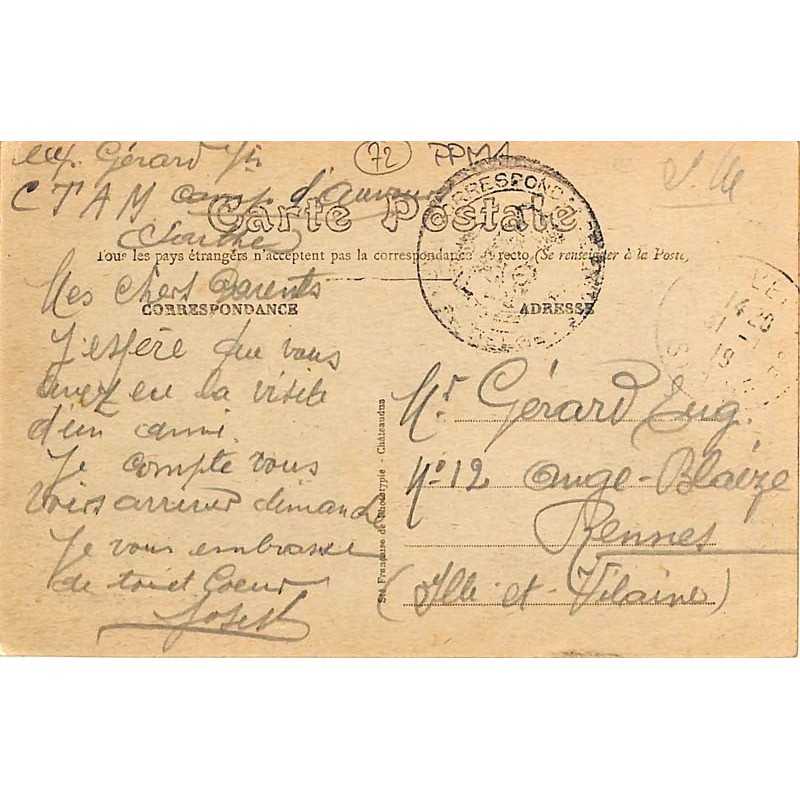 exp. Gérard Jh
72
PPMA
C T A M camp d'Auvours
(Sarthe)
Carte Postale
Tous les pays étrangers n'acceptent pas la correspondance au recto (Se renseigner à la Poste)
CORRESPONDANCE
ADRESSE
Mes chers Parents
J'espère que vous
avez eu la visite
d'un ami.
Je compte vous
voirs arriver dimanche
Je vous embrasse
de tout Coeur
Joseph
Sté Française de Phototypie - Châteaudun
Mr Gérard Eug.
No 12 ange-Blaize
Rennes
(Ille-et-Vilaine)
CORRESPOND
14 20